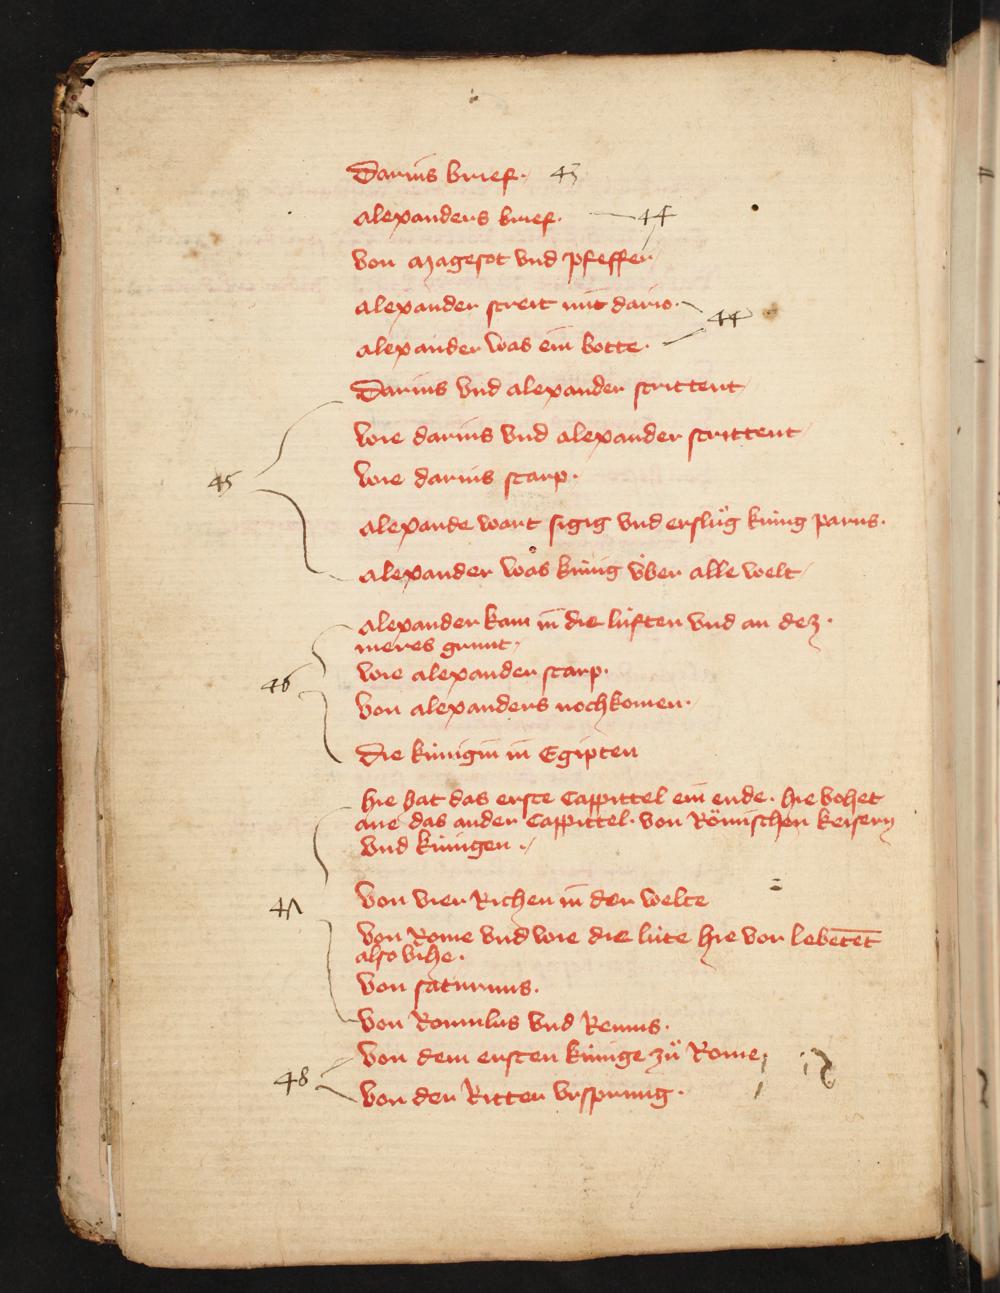 Darius brief. 43
alexanders brief. 44
von magesot vnd pfeffer
alexander streit mit dario.
44
alexander was ein botte.
Darius vnd alexander strittent
wie darius vnd alexander strittent
45
wie darius starp.
alexande wart sigig vnd erslůg kúnig parus.
alexander was kúnig v́ber alle welt
alexander kam in̄ die lúften vnd an dez
meres grunt
46
wie alexander starp.
von alexanders nochkomen.
Die kúnigin in Egipten
hie hat das erste Cappittel ein ende. hie vohet
ane das ander Cappittel. von Römischen keisern
vnd kúnigen.
47
von vier Richen in̄ der welte
von Rome vnd wie die lúte hie vor lebetēt
also vihe.
von saturnus.
von Romulus vnd Remus.
von dem ersten kúnige zů Rome
48
von der Ritter vrsprung.